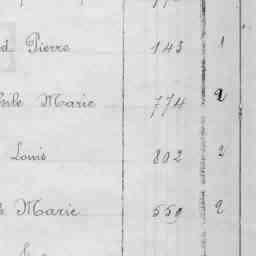 Pierre 143 1
Marie 774 2
Louis 802 2
Marie 550 2